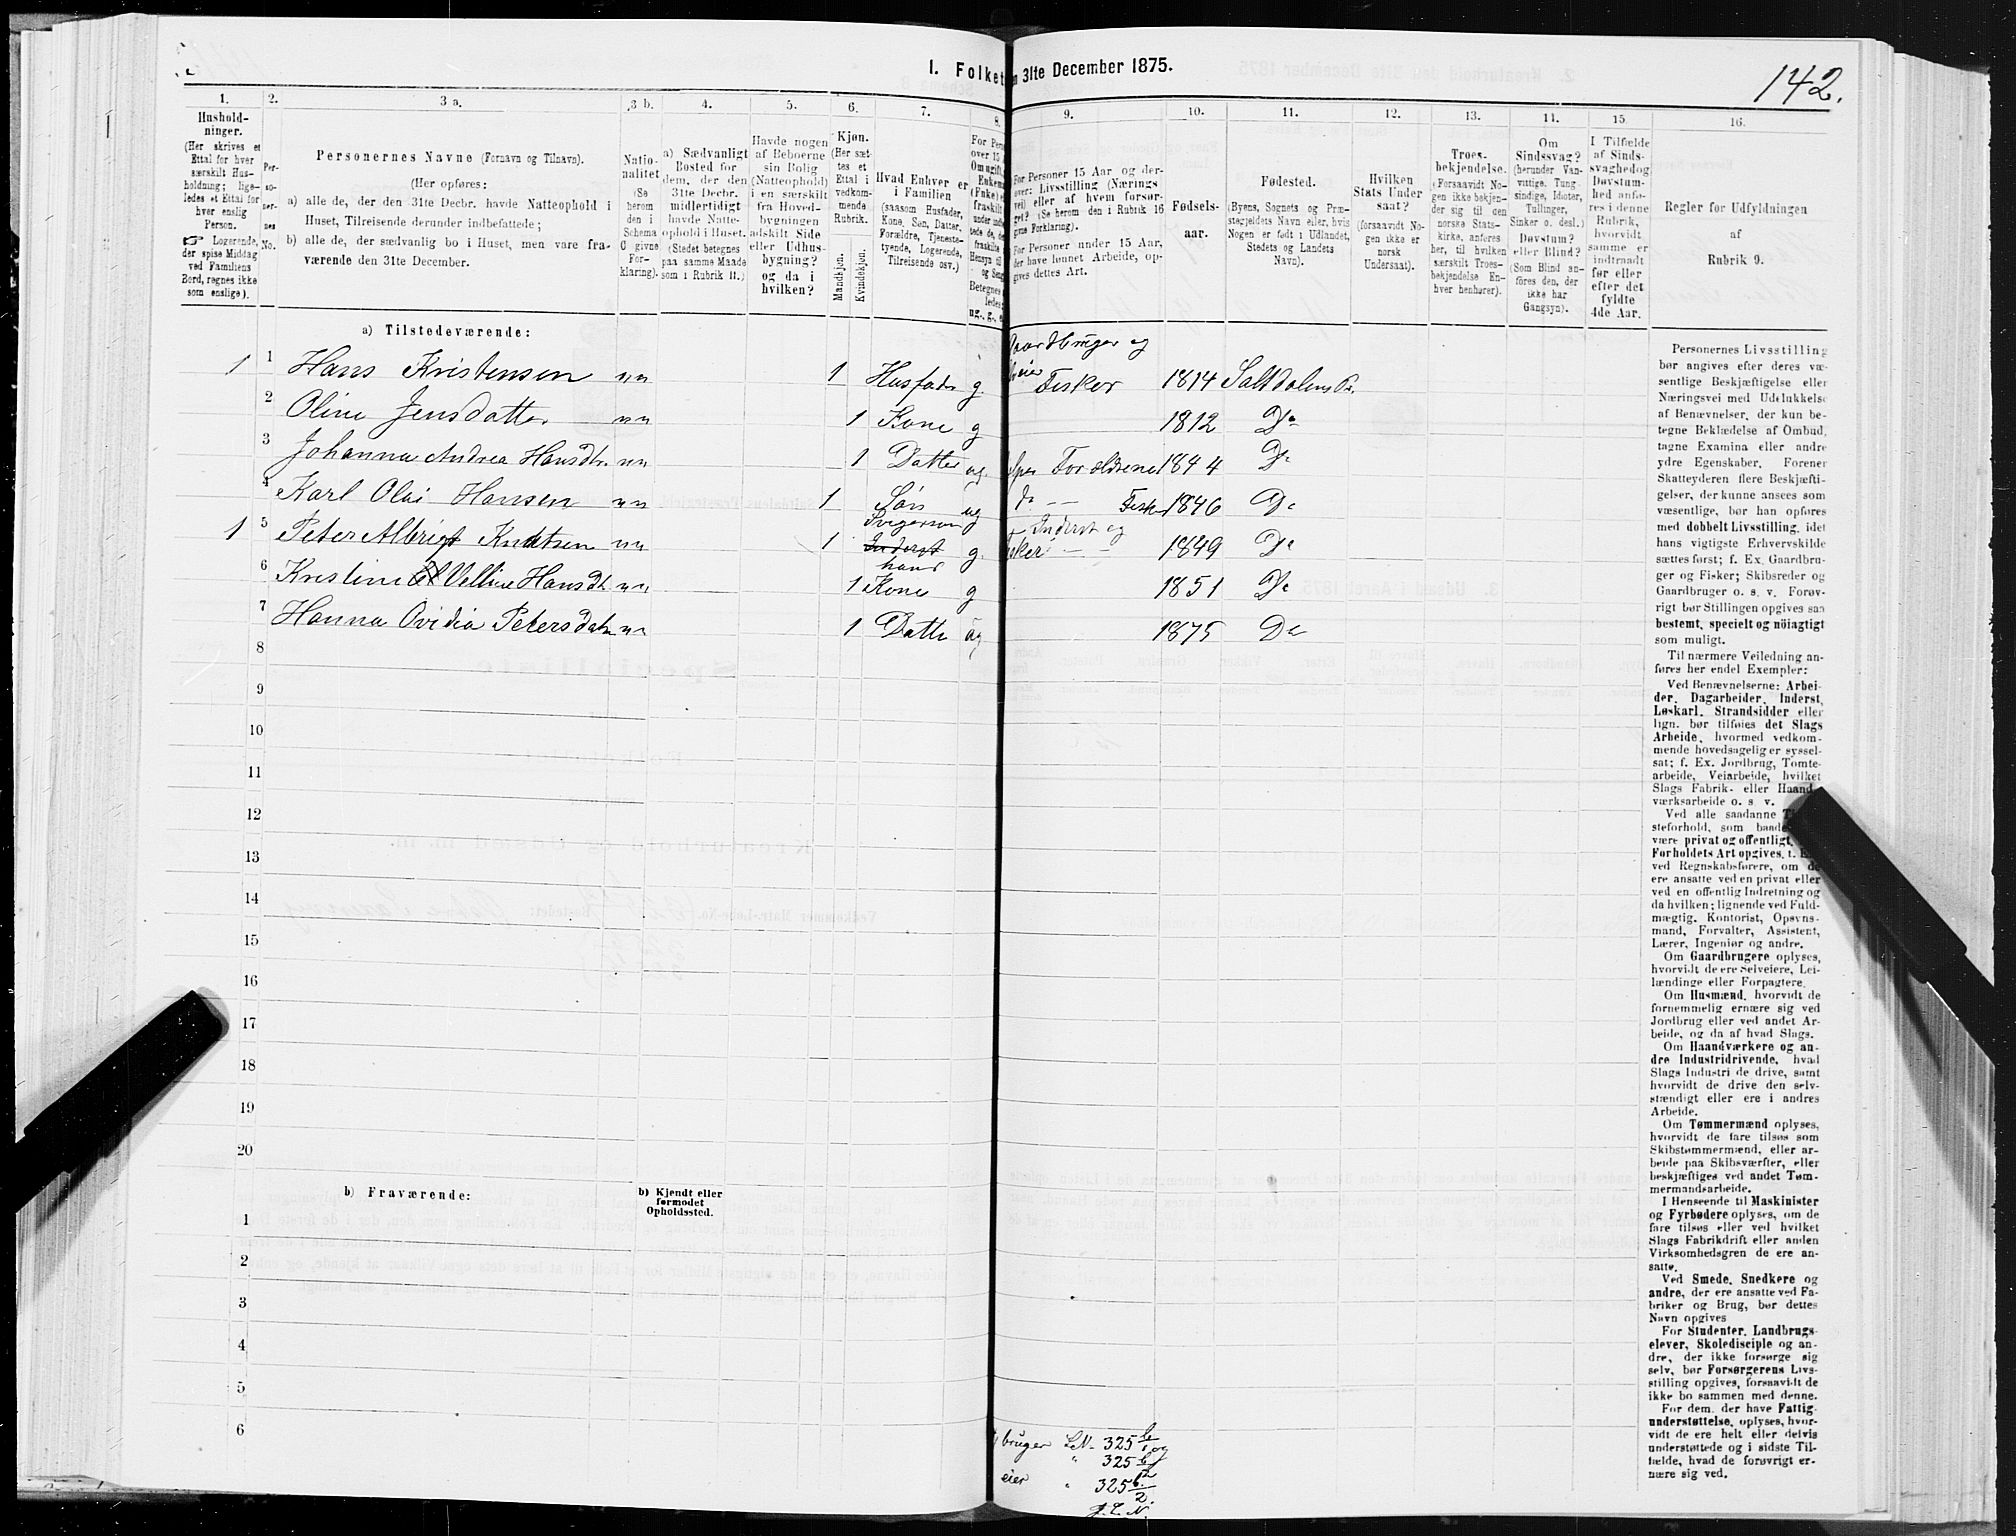 I. Folket
n 31te December 1875.
142.
1.
Hushold-
ninger.
(Her skrives et
Ettal for hver
særskilt Hus-
holdning; lige-
ledes et Ettal for
hver enslig
Person.
Logerende,
der spise Middag
ved Familiens
Bord, regnes ikke
som enslige).
2.
Per-
so-
ner-
nes
No.
3 a.
Personernes Navne (Fornavn og Tilnavn).
(Her opføres:
a) alle de, der den 31te Decbr. havde Natteophold i
Huset, Tilreisende derunder indbefattede;
b) alle de, der sædvanlig bo i Huset, men vare fra-
værende den 31te December.
3 b.
Natio-
nalitet
(Se
herom
den i
Schema
O givne
For-
klaring).
4.
a) Sædvanligt
Bosted for
dem, der den
31te Decbr.
midlertidigt
havde Natte-
ophold i Huset.
(Stedet betegnes
paa samme Maade
som i Rubrik 11.)
5.
Havde nogen
af Beboerne
sin Bolig
(Natteophold)
i en særskilt
fra Hoved-
bygningen
adskilt Side
eller Udhus-
bygning?
og da i
hvilken?
6.
Kjøn.
(Her sæt-
tes et
Ettal i
vedkom-
mende
Rubrik.
Mandkjøn.
Kvindekjøn.
7.
Hvad Enhver er
i Familien
(saasom Husfader,
Kone, Søn, Datter,
Forældre, Tjeneste-
tyende, Logerende,
Tilreisende osv.)
8.
For Pers
over 15
Om ugift,
Enkem
(Enke)
fraskilt
9.
For Personer 15 Aar og der-
over: Livsstilling (Nærings-
vei) eller af hvem forsør-
get? (Se herom den i Rubrik 16
givne Forklaring).
For Personer under 15 Aar,
der have lønnet Arbeide, op-
gives dettes Art.
10.
Fødsels-
aar.
11.
Fødested.
(Byens, Sognets og Præ-
stegjeldets Navn eller, hvis
Nogen er født i Udlandet,
Stedets og Landets
Navn).
12.
Hvilken
Stats Under
saat?
(forsaavidt No-
gen ikke er
norsk
Undersaat).
13.
Troes-
bekjendelse.
(Forsaavidt No-
gen ikke bekjen-
der sig til den
norske Stats-
kirke, anføres
her, til hvilken
særskilt Troes-
bekjendelse En-
hver henhører).
11.
Om
Sindssvag?
(herunder Van-
vittige, Tung-
sindige, Idioter,
Tullinger,
Sinker o. desl.)
Døvstum?
eller Blind?
(Som Blind an-
føres den, der
ikke har
Gangsyn).
15.
I Tilfælde
af Sinds-
svaghed og
Døvstum-
hed anfø-
res i denne
Rubrik,
hvorvidt
samme er
indtraadt
før eller
efter det
fyldte
4de Aar.
16.
Regler for Udfyldningen
af
Rubrik 9.
a) Tilstedeværende:
1 1 Hans Kristensen nn 1 Husfader g. Gaardbruger og Fisker 1814 Saltdalens Pr.
2 Oline Jensdatter nn 1 Kone g 1812 Do
3 Johanna Andrea Hansdtr nn 1 Datter ug Forældrene 1844 Do
4 Karl Olai Hansen nn 1 Søn ug do Fisker 1846 Do
1 5 Peter Albrigt Knutsen nn 1 Svigersøn Inderst g. Inderst og Fisker 1849 Do
6 Kristine Velline Hansdtr nn 1 hans Kone g 1851 Do
7 Hanna Ovidia Petersdatr nn 1 Datter ug 1875 Do
8
9
10
11
12
13
14
15
16
17
18
19
20
b) Fraværende:
b) Kjendt eller
formodet
Opholdssted.
1
2
3
4
5
6
bruger L.N. 325 b/1 og
" 325
eier " 325 b/2
J. L. N.
Personernes Livsstilling
bør angives efter deres væ-
sentlige Beskjæftigelse eller
Næringsvei med Udelukkelse
af Benævnelser, der kun be-
tegne Beklædelse af Ombud,
tagne Examina eller andre
ydre Egenskaber. Forener
Skatteyderen flere Beskjæfti-
gelser, der kunne ansees som
væsentlige, bør han opføres
med dobbelt Livsstilling, idet
hans vigtigste Erhvervskilde
sættes først; f. Ex. Gaardbru-
ger og Fisker; Skibsreder og
Gaardbruger o. s. v. Forøv-
rigt bør Stillingen opgives saa
bestemt, specielt og nöiagtigt
som muligt.
Til nærmere Veiledning an-
føres her endel Exempler:
Ved Benævnelserne: Arbei-
der, Dagarbeider, Inderst,
Løskarl, Strandsidder eller
lign. bør tilføies det Slags
Arbeide, hvormed vedkom-
mende hovedsagelig er syssel-
sat; f. Ex. Jordbrug, Tomte-
arbeide, Veiarbeide, hvilket
Slags Fabrik- eller Haand-
værksarbeide o. s. v.
Ved alle saadanne
steforhold, som baade
være privat og offentligt,
Forholdets Art opgives, t. Ex.
ved Regnskabsførere, om de
ere ansatte ved en privat eller
ved en offentlig Indretning og
da hvilken; lignende ved Fuld-
mægtig, Kontorist, Opsyns-
mand, Forvalter, Assistent,
Lærer, Ingeniør og andre.
Om Gaardbrugere oplyses,
hvorvidt de ere Selveiere, Lei-
lændinge eller Forpagtere.
Om Husmænd, hvorvidt de
fornemmelig ernære sig ved
Jordbrug eller ved andet Ar-
beide, og da af hvad Slags.
Om Haandværkere og an-
dre Industridrivende, hvad
Slags Industri de drive, samt
hvorvidt de drive den selv-
stændigt eller ere i andres
Arbeide.
Om Tømmermænd oplyses,
hvorvidt de fare tilsøs som
Skibstømmermænd, eller ar-
beide paa Skibsværfter, eller
beskjæftiges ved andet Tøm-
mermandsarbeide.
I Henseende til Maskinister
og Fyrbødere oplyses, om de
fare tilsøs eller ved hvilket
Slags Fabrikdrift eller anden
Virksomhedsgren de ere an-
satte.
Ved Smede, Snedkere og
andre, der ere ansatte ved Fa-
briker og Brug, bør dettes
Navn opgives
For Studenter, Landbrugs-
elever, Skoledisciple og an-
dre, der ikke forsørge sig
selv, bør Forsørgerens Livs-
stilling opgives, forsaavidt de
ikke bo sammen med denne.
For dem, der have Fattig-
understøttelse, oplyses, hvor-
vidt de ere helt eller delvis
understøttede og i sidste Til-
fælde, hvad de forøvrigt er-
nære sig ved.